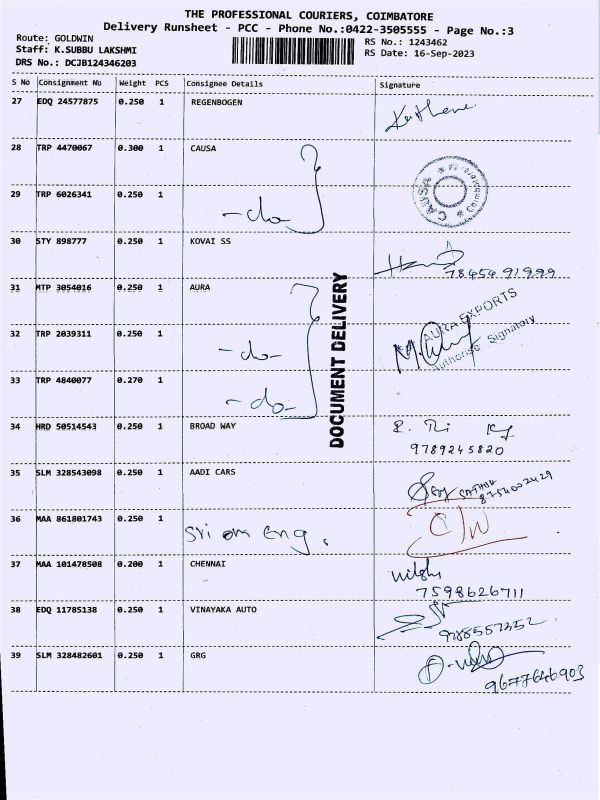 THE PROFESSIONAL COURIERS, COIMBATORE
Delivery Runsheet - PCC - Phone No.:0422-3505555 - Page No.:3
Route: GOLDWIN
Staff: K.SUBBU LAKSHMI
DRS No.: DCJB124346203
RS No.: 1243462
RS Date: 16-Sep-2023
S No Consignment No Weight PCS Consignee Details Signature
27 EDQ 24577875 0.250 1 REGENBOGEN
28 TRP 4470067 0.300 1 CAUSA
CAUSA
29 TRP 6026341 0.250 1 -do-
30 STY 898777 0.250 1 KOVAI SS
78454 91999
31 MTP 3054016 0.250 1 AURA
AURA EXPORTS
Authorise Signatory
32 TRP 2039311 0.250 1 -do-
33 TRP 4840077 0.270 1 -do-
DOCUMENT DELIVERY
34 HRD 50514543 0.250 1 BROAD WAY
9789245820
35 SLM 328543098 0.250 1 AADI CARS
36 MAA 861801743 0.250 1 Sri om Eng. C/W
37 MAA 101478508 0.200 1 CHENNAI
7598626711
38 EDQ 11785138 0.250 1 VINAYAKA AUTO
39 SLM 328482601 0.250 1 GRG
9677646903